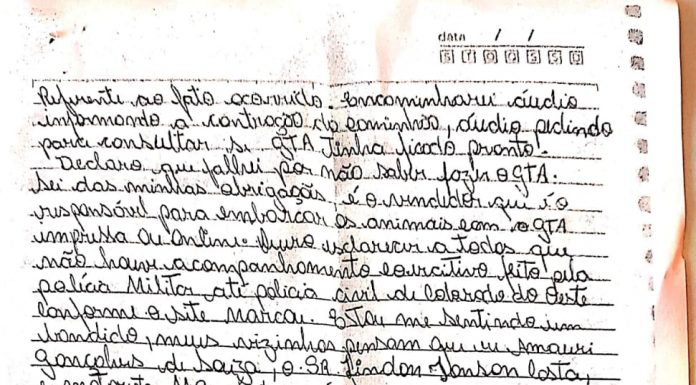 data / /
S T Q Q S S D
Referente ao fato ocorrido. Encaminharei áudio
informando a contração do caminhão, áudio pedindo
para consultar se GTA tinha ficado pronto.
Declaro que falhei por não saber fazer o GTA.
Sei das minhas obrigações, é o vendedor que é o
responsável para embarcar os animais com o GTA
impressa ou online. Quero esclarecer a todos que
não houve acompanhamento coercitivo feito pela
polícia Militar até polícia civil de Colorado do Oeste
conforme o site marca. Estou me sentindo um
bandido, meus vizinhos pensam que eu Amauri
Gonçalves de Souza, o SR. Lindon Jonson Costa,